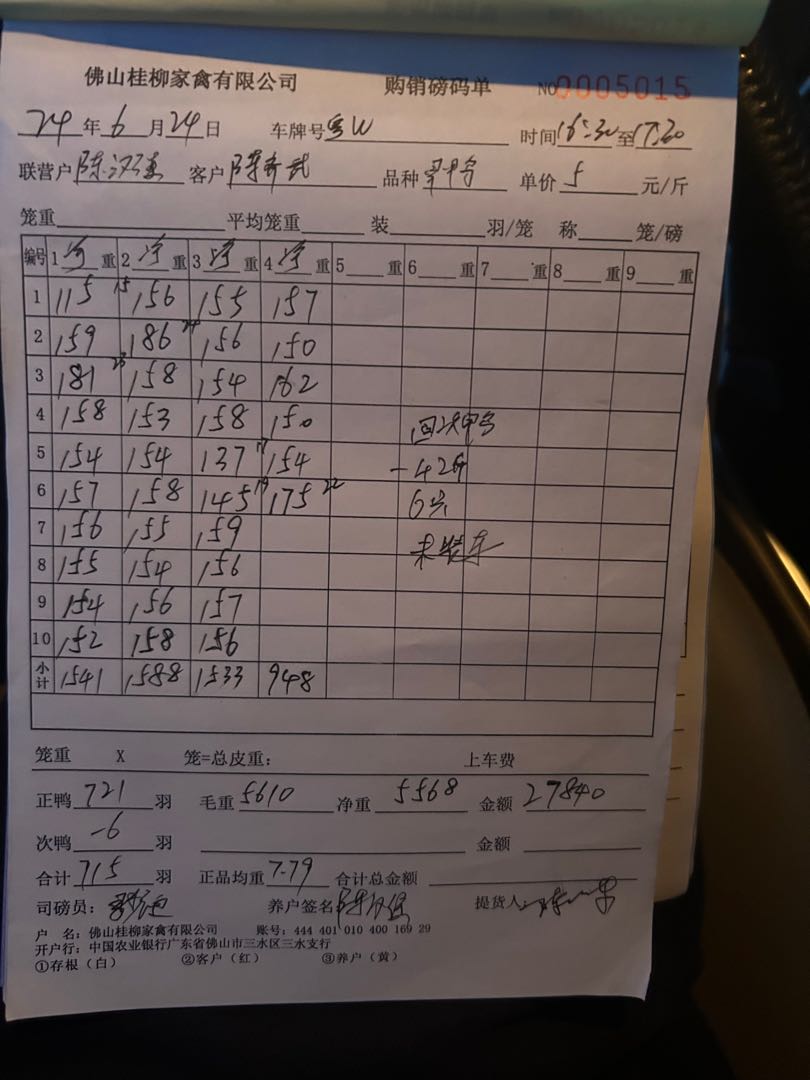 佛山桂柳家禽有限公司 购销磅码单 NO 0005015
24年6月24日 车牌号粤W 时间16:30至17:20
联营户陈汉 客户陈 品种 单价5元/斤
笼重 平均笼重 装 羽/笼 称 笼/磅
编号 1净重 2净重 3净重 4净重 5重 6重 7重 8重 9重
1 115 15 156 155 157
2 159 186 24 156 150
3 181 23 158 154 162
4 158 153 158 150
5 154 154 137 17 154 -42斤
6 157 158 145 19 175 22 6只
7 156 155 159 未装车
8 155 154 156
9 154 156 157
10 152 158 156
小计 1541 1588 1533 948
笼重 X 笼=总皮重： 上车费
正鸭721羽 毛重5610 净重5568 金额27840
次鸭-6羽 金额
合计715羽 正品均重7.79 合计总金额
司磅员： 养户签名陈汉 提货人
户 名：佛山桂柳家禽有限公司 账号：444 401 010 400 169 29
开户行：中国农业银行广东省佛山市三水区三水支行
①存根（白） ②客户（红） ③养户（黄）